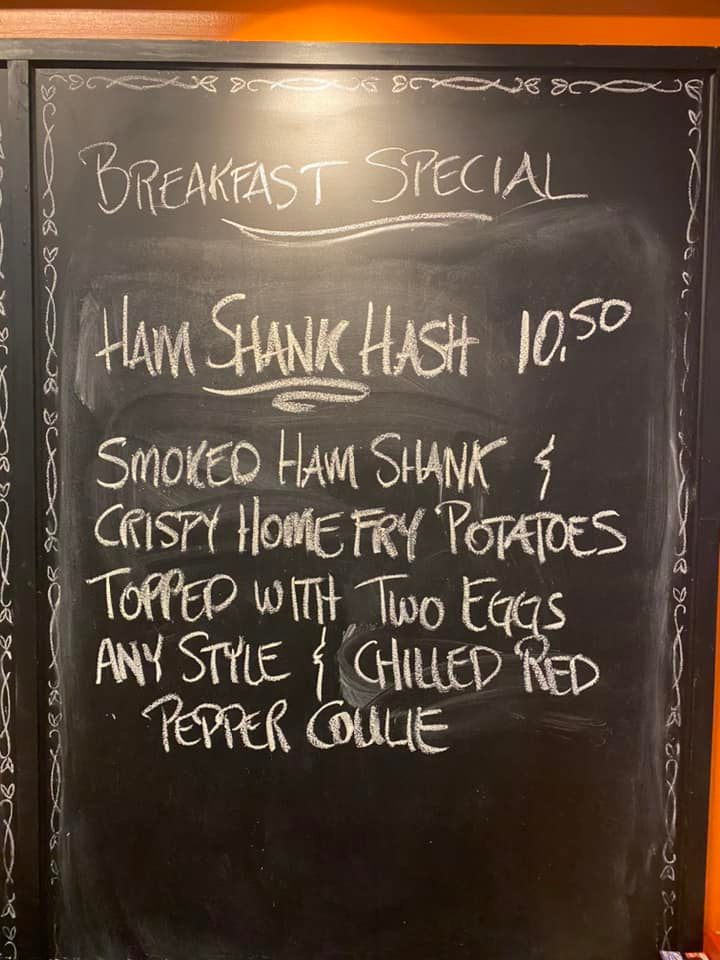 BREAKFAST SPECIAL
HAM SHANK HASH 10.50
SMOKED HAM SHANK &
CRISPY HOME FRY POTATOES
TOPPED WITH TWO EGGS
ANY STYLE & CHILLED RED
PEPPER COULIE